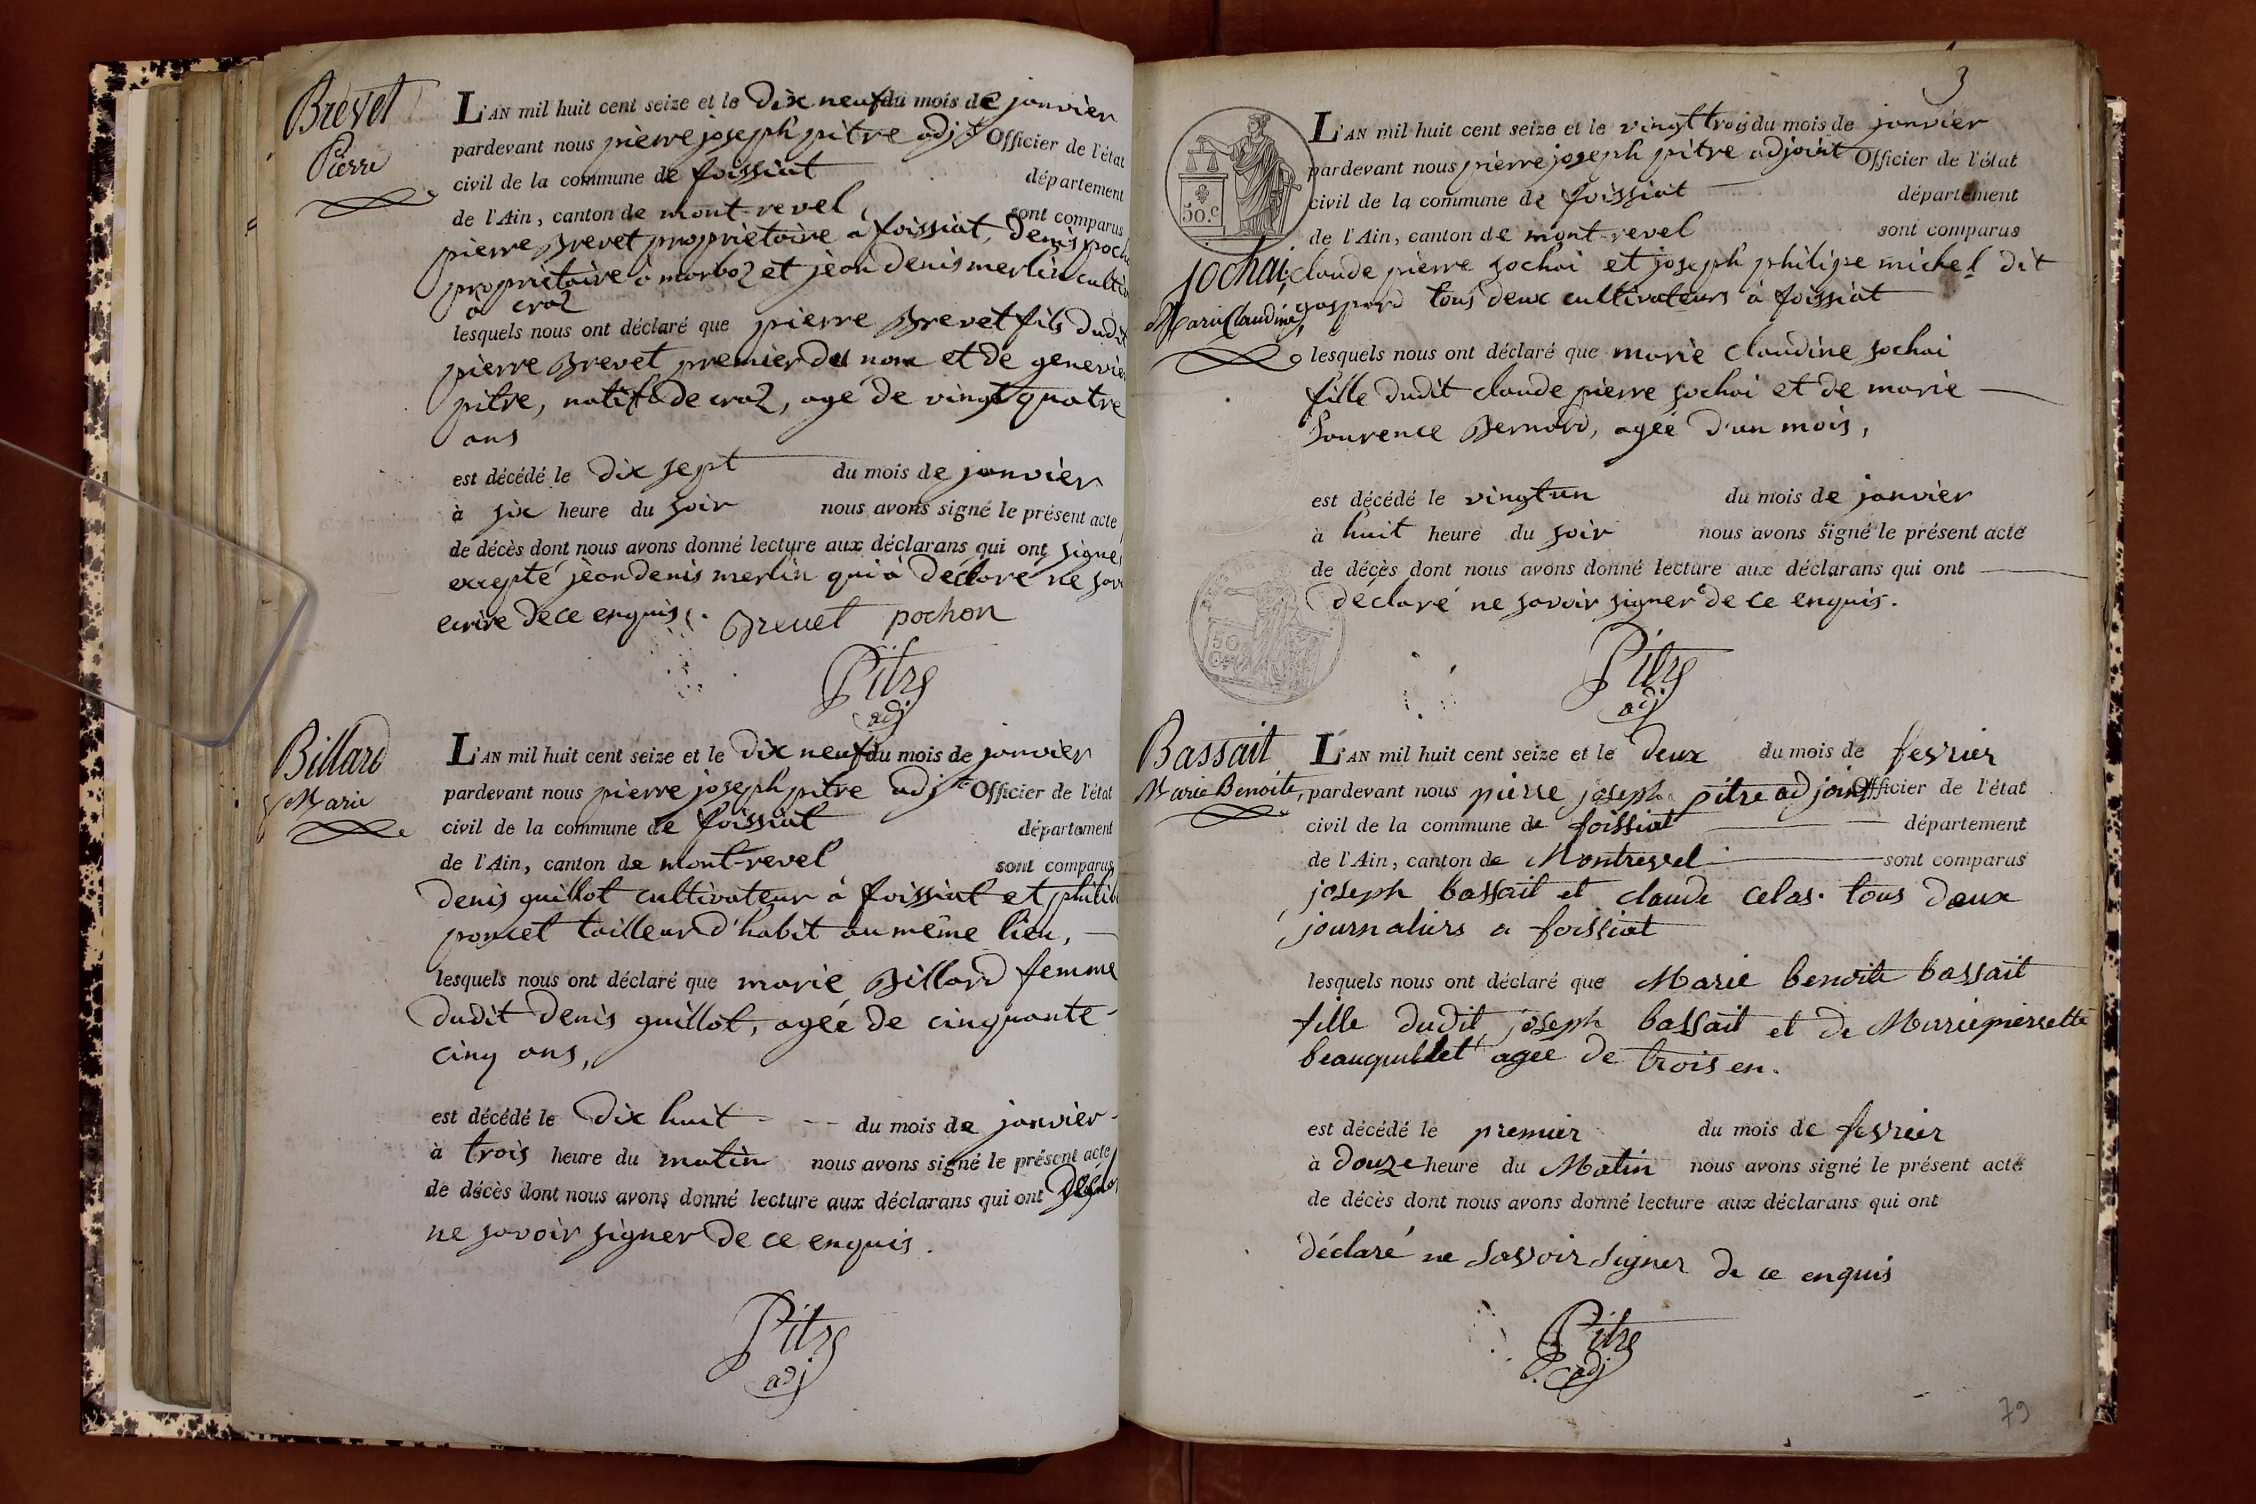 Brevet
Pierre
L'AN mil huit cent seize et le dix neuf du mois de janvier
pardevant nous pierre joseph pitre adjt Officier de l'état
civil de la commune de foissiat département
de l'Ain, canton de mont-revel sont comparus
pierre Brevet proprietaire a foissiat, Denis poch
proprietaire à marboz et jean denis merlin cultiv
a craz
lesquels nous ont déclaré que pierre Brevet fils dudit
pierre Brevet premier du nom et de genevie
pitre, natif de craz, agé de vingt quatre
ans
est décédé le dix sept du mois de janvier
à six heure du soir nous avons signé le présent acte
de décès dont nous avons donné lecture aux déclarans qui ont signé
excepté jean denis merlin qui a déclaré ne savo
ecrire de ce enquis. Brevet pochon
Pitre
adj
Billard
Marie
L'AN mil huit cent seize et le dix neuf du mois de janvier
pardevant nous pierre joseph pitre adjt Officier de l'état
civil de la commune de foissiat département
de l'Ain, canton de mont-revel sont comparus
denis guillot cultivateur à foissiat et philib
poncet tailleur d'habit au même lieu,
lesquels nous ont déclaré que marie Billard femme
dudit Denis guillot, agée de cinquante
cinq ans,
est décédé le dix huit du mois de janvier
à trois heure du matin nous avons signé le présent acte
de décès dont nous avons donné lecture aux déclarans qui ont Déclar
ne savoir signer de ce enquis.
Pitre
adj
3
50.c
L'AN mil huit cent seize et le vingt trois du mois de janvier
pardevant nous pierre joseph pitre adjoint Officier de l'état
civil de la commune de foissiat département
de l'Ain, canton de mont-revel sont comparus
jochai,
Marie Claudine,
claude pierre jochai et joseph philipe michel dit
gaspard tous deux cultivateurs à foissiat
lesquels nous ont déclaré que marie claudine jochai
fille dudit claude pierre jochai et de marie
Laurence Bernard, agée d'un mois,
est décédé le vingt un du mois de janvier
à huit heure du soir nous avons signé le présent acte
de décès dont nous avons donné lecture aux déclarans qui ont
déclaré ne savoir signer de ce enquis.
Pitre
adj
Bassait
Marie Benoite,
L'AN mil huit cent seize et le deux du mois de fevrier
pardevant nous pierre joseph pitre adjoint Officier de l'état
civil de la commune de foissiat département
de l'Ain, canton de Montrevel sont comparus
joseph bassait et claude celas. tous deux
journaliers a foissiat
lesquels nous ont déclaré que Marie benoite bassait
fille dudit joseph bassait et de Marie pierrette
agée de trois en.
est décédé le premier du mois de fevrier
à douze heure du Matin nous avons signé le présent acte
de décès dont nous avons donné lecture aux déclarans qui ont
déclaré ne savoir signer de ce enquis
Pitre
adj
79